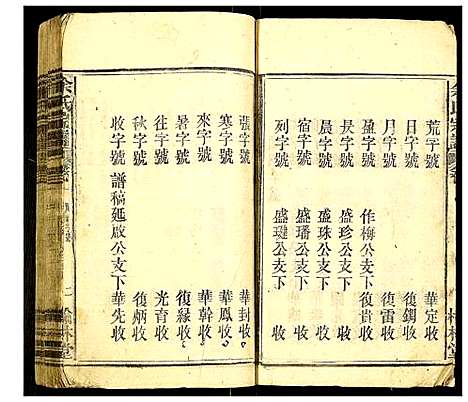 荒字號 華定收
日字號 復鐲收
月字號 復雷收
盈字號 作梅公支下復貴收
昃字號 盛珍公支下 收
晨字號 盛珠公支下 收
宿字號 盛璠公支下 收
列字號 盛璉公支下 收
張字號 華封收
寒字號 華鳳收
來字號 華幹收
暑字號 復緣收
往字號 光育收
秋字號 復炳收
收字號 譜稿延啟公支下華先收
余氏宗譜
二